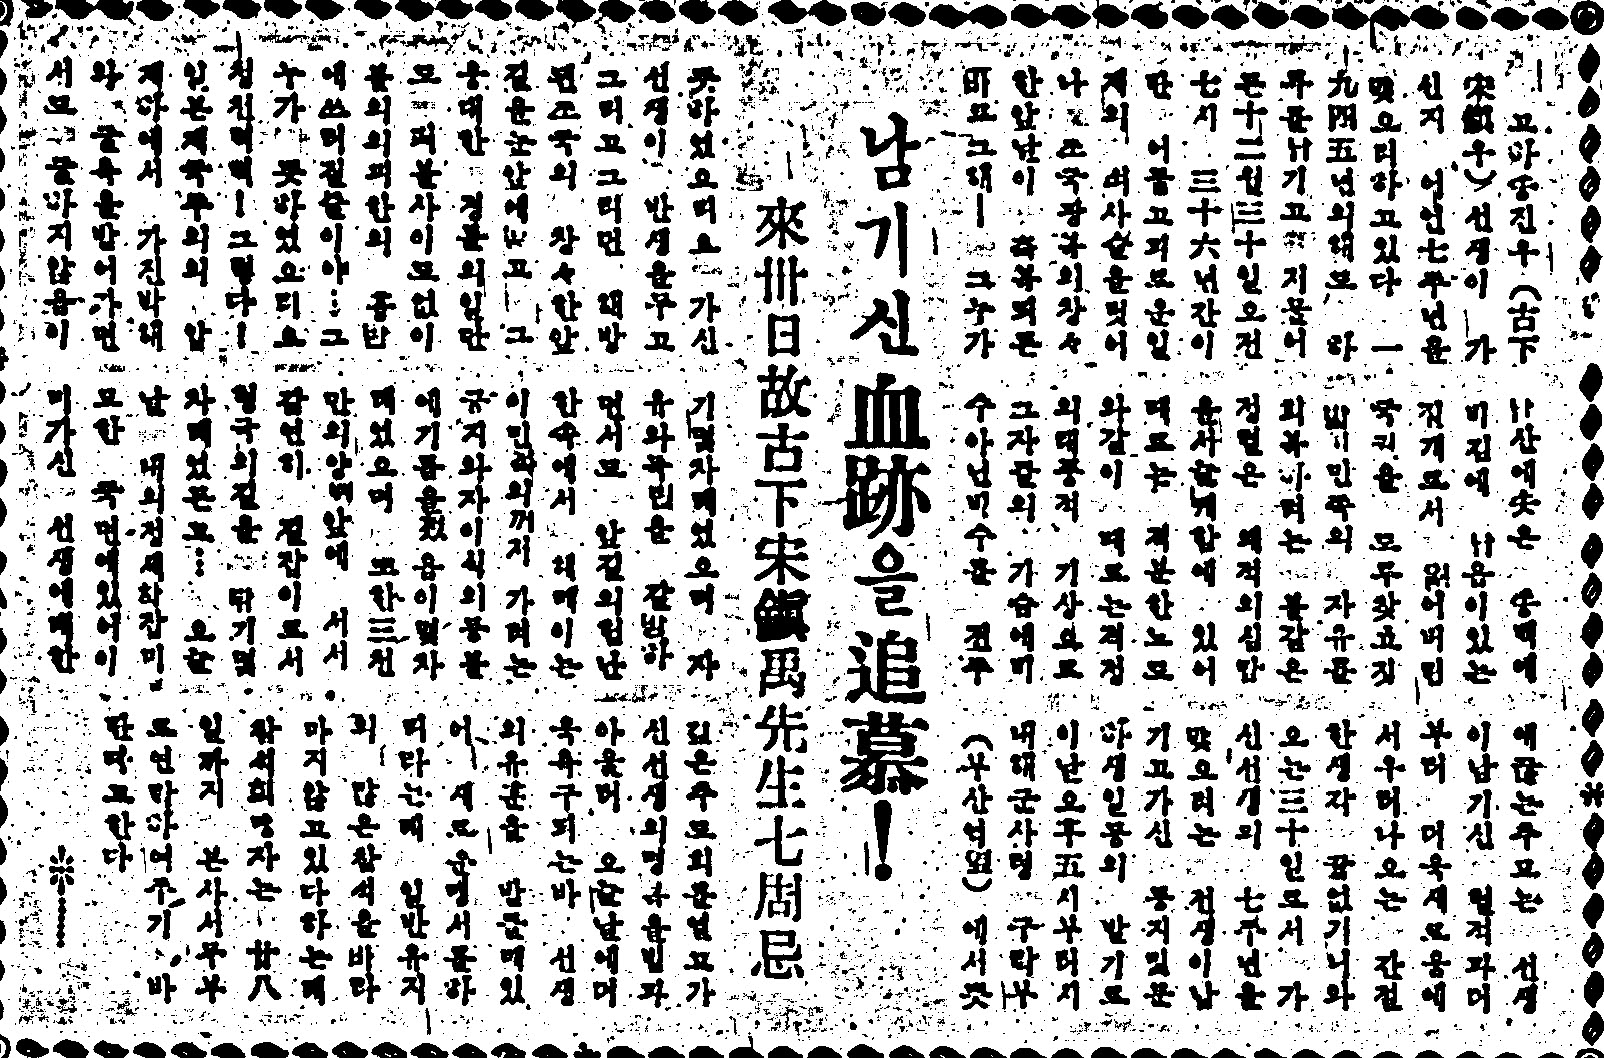 남기신血跡을追慕!
來卅日故古下宋鎭禹先生七周忌
고아송진우(古下
宋鎭우)선생이 가
신지 어언七주년을
맞으리하고있다 一
九四五년의해도 하
루를남기고 저물어
든十二월三十일오전
七시 三十六년간이
란 어둡고괴로운일
제의 쇠사슬을벗어
나 조국광복의창々
한앞날이 축복되든
바로그해― 그누가
뜻하였으리요 가신
선생이 반생을두고
그리고그리던 해방
된조국의 창々한앞
길을눈앞에보고 그
웅대한 경륜의일단
도 펴볼사이도없이
불의의피한의 흉탄
에 쓰러질줄이야…그
누가 뜻하였으리요
청천벽력!그렇다!
일본제국주의의 압
제아래서 가진박해
와 굴욕을받어가면
서도 굴하지않음이
남음이있는
읽어버린
국권을 도루찾고짓
밟힌민족의 자유를
회복하려는 불같은
정열은 왜적의심만
을서늘게함에 있어
때로는 격분한노도
와같이 때로는격정
의대풍적 기상으로
그자들의 가슴에비
수아닌비수를 견주
기몇차례였으며 자
유와독립을 갈망하
면서도 앞길의험난
한속에서 헤메이는
이민족의꺼저 가려는
긍지와자아의식의등불
에기름을첬음이몇차
례였으며 또한三천
만의양떼앞에 서서
감연히 길잡이로서
형극의길을 밟기몇
차례였든고… 오늘
날 내외정세
묘한 국면에있어이
미가신 선생에대한
애끊는추모는 선생
이남기신 혈적과더
부러 더욱새로움에
서우러나오는 간절
한생각 끝없기니와
오는三十일로서 가
신선생의 七주년을
맞으려는 선생이남
기고가신 동지및문
하생일동의 발기로
이날오후五시부터시
내해군사령 구락부
(부산역앞)에서뜻
깊은추도회를열고가
신선생의명복을빌과
아울러 오늘날에더
욱욕구되는바 선생
의유훈을 받들매있
어 새로운맹서를하
리라는데 일반유지
의 많은참석을바라
마지않고있다하는데
참석희망자는 廿八
일까지 본사서무부
로연락하여주기 바
란다고한다